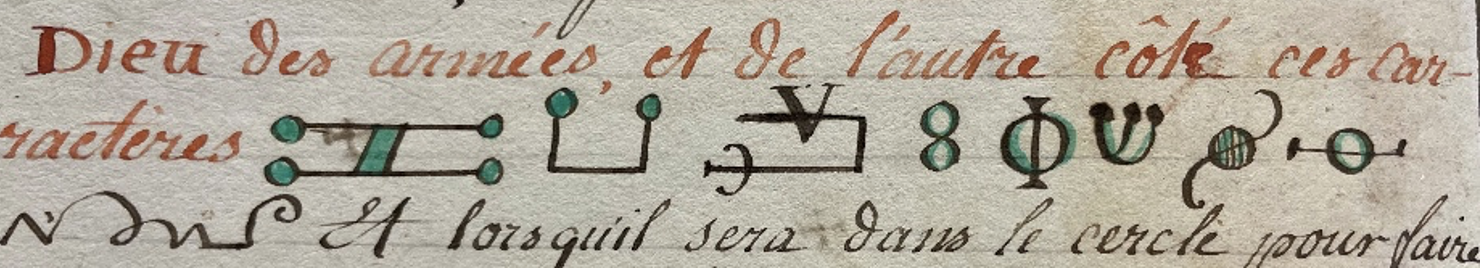 Dieu des armées, et de l'autre côté ces car-
ractères
Et lorsquil sera dans le cercle pour faire